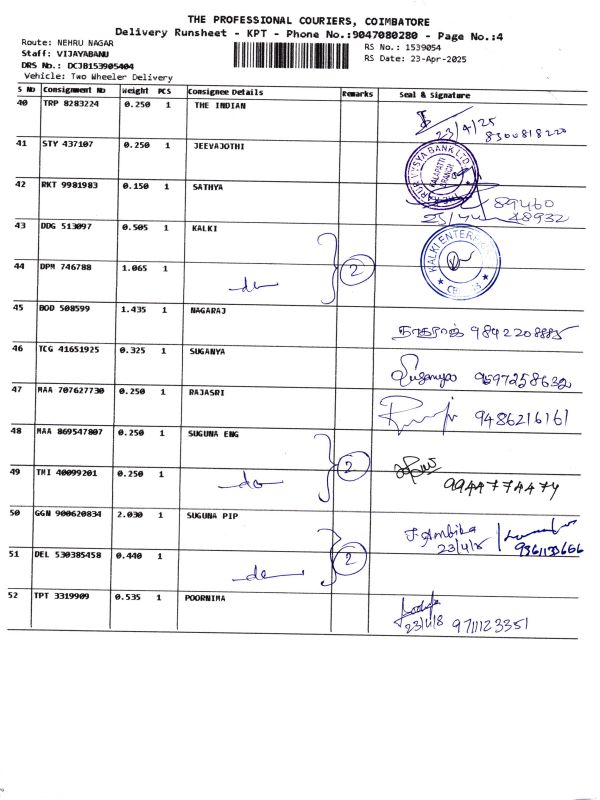 THE PROFESSIONAL COURIERS, COIMBATORE
Delivery Runsheet - KPT - Phone No.:9047080280 - Page No.:4
Route: NEHRU NAGAR
RS No.: 1539054
Staff: VIJAYABANU
RS Date: 23-Apr-2025
DRS No.: DCJB153905404
Vehicle: Two Wheeler Delivery
S No Consignment No Weight PCS Consignee Details Remarks Seal & Signature
40 TRP 8283224 0.250 1 THE INDIAN
23/4/25
8300818220
41 STY 437107 0.250 1 JEEVAJOTHI
VYSYA BANK LTD
KALAPATTI
BRANCH
42 RKT 9981983 0.150 1 SATHYA
89460
48932
43 DDG 513097 0.505 1 KALKI
KALKI ENTER
44 DPM 746788 1.065 1
do 2
45 BOD 508599 1.435 1 NAGARAJ
நாகராஜ் 9842208885
46 TCG 41651925 0.325 1 SUGANYA
Suganya 9597258632
47 MAA 707627730 0.250 1 RAJASRI
9486216161
48 MAA 869547807 0.250 1 SUGUNA ENG
49 TMI 40099201 0.250 1
do 2
9944774474
50 GGN 900620834 2.030 1 SUGUNA PIP
J. Ambika
23/4/8 9361133666
51 DEL 530385458 0.440 1
do 2
52 TPT 3319909 0.535 1 POORNIMA
23/4/8 9711123351